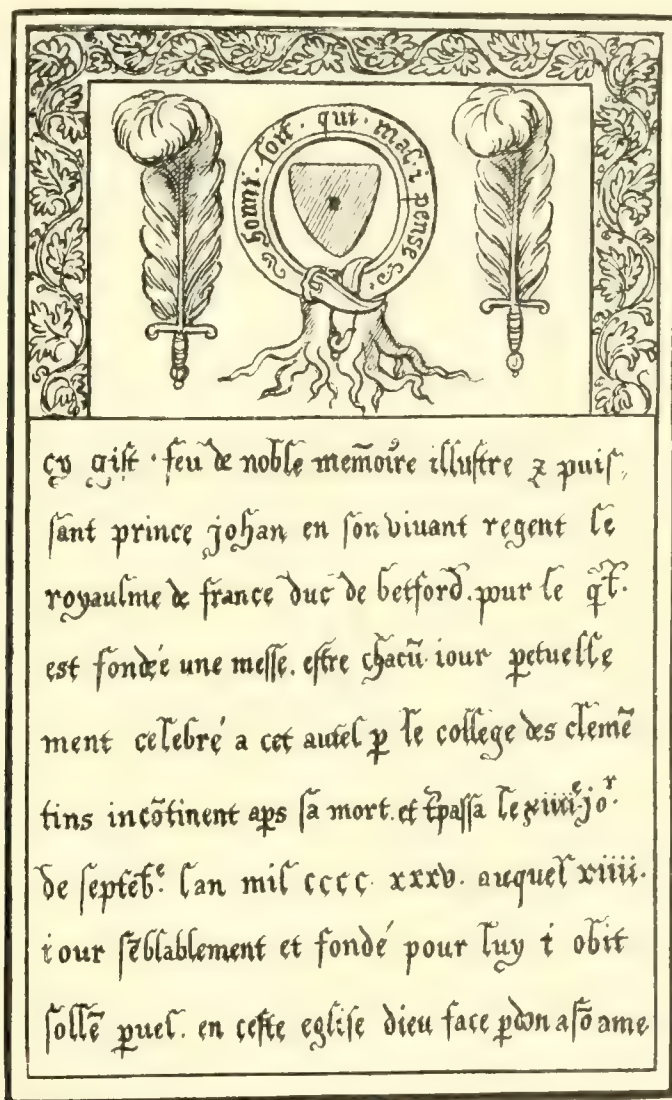 honni · soit · qui · mal · i pense
cy gist · feu de noble memoire illustre & puis
sant prince johan en son viuant regent le
royaulme de france duc de betford. pour le ql̃.
est fondée une messe. estre chacũ iour ꝑetuelle
ment celebré a cet autel ꝑ le college des clemẽ
tins incõtinent aps sa mort. et t̃passa le xiiiiᵉ joʳ.
de septebᵉ. lan mil cccc xxxv. auquel xiiii.
iour sẽblablement et fondé pour luy i obit
sollẽ ꝑuel. en ceste eglise dieu face ꝑdon a sõ ame